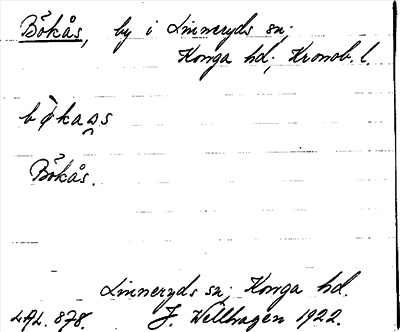 Bökås, by i Linneryds sn;
Konga hd; Kronob. l.
bø̀kas
Bökås.
Linneryds sn; Konga hd.
LAL. 878. J. Wellhagen 1922.